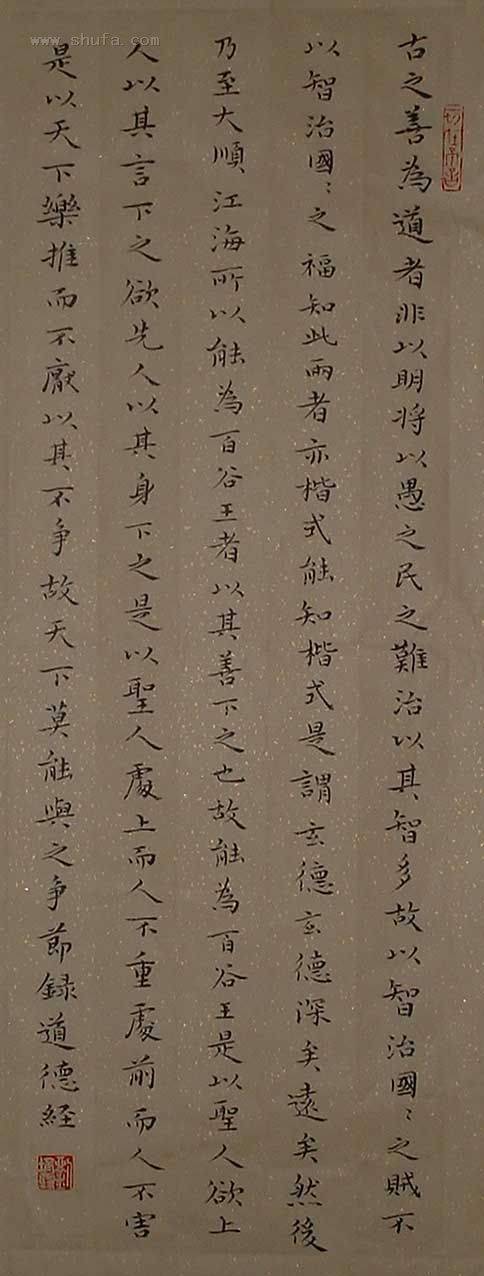 古之善為道者非以明将以愚之民之難治以其智多故以智治國〻之賊不
以智治國〻之福知此兩者亦楷式能知楷式是謂玄德玄德深矣遠矣然後
乃至大順江海所以能為百谷王者以其善下之也故能為百谷王是以聖人欲上
人以其言下之欲先人以其身下之是以聖人處上而人不重處前而人不害
是以天下樂推而不厭以其不争故天下莫能與之争節録道德経
www.shufa.com